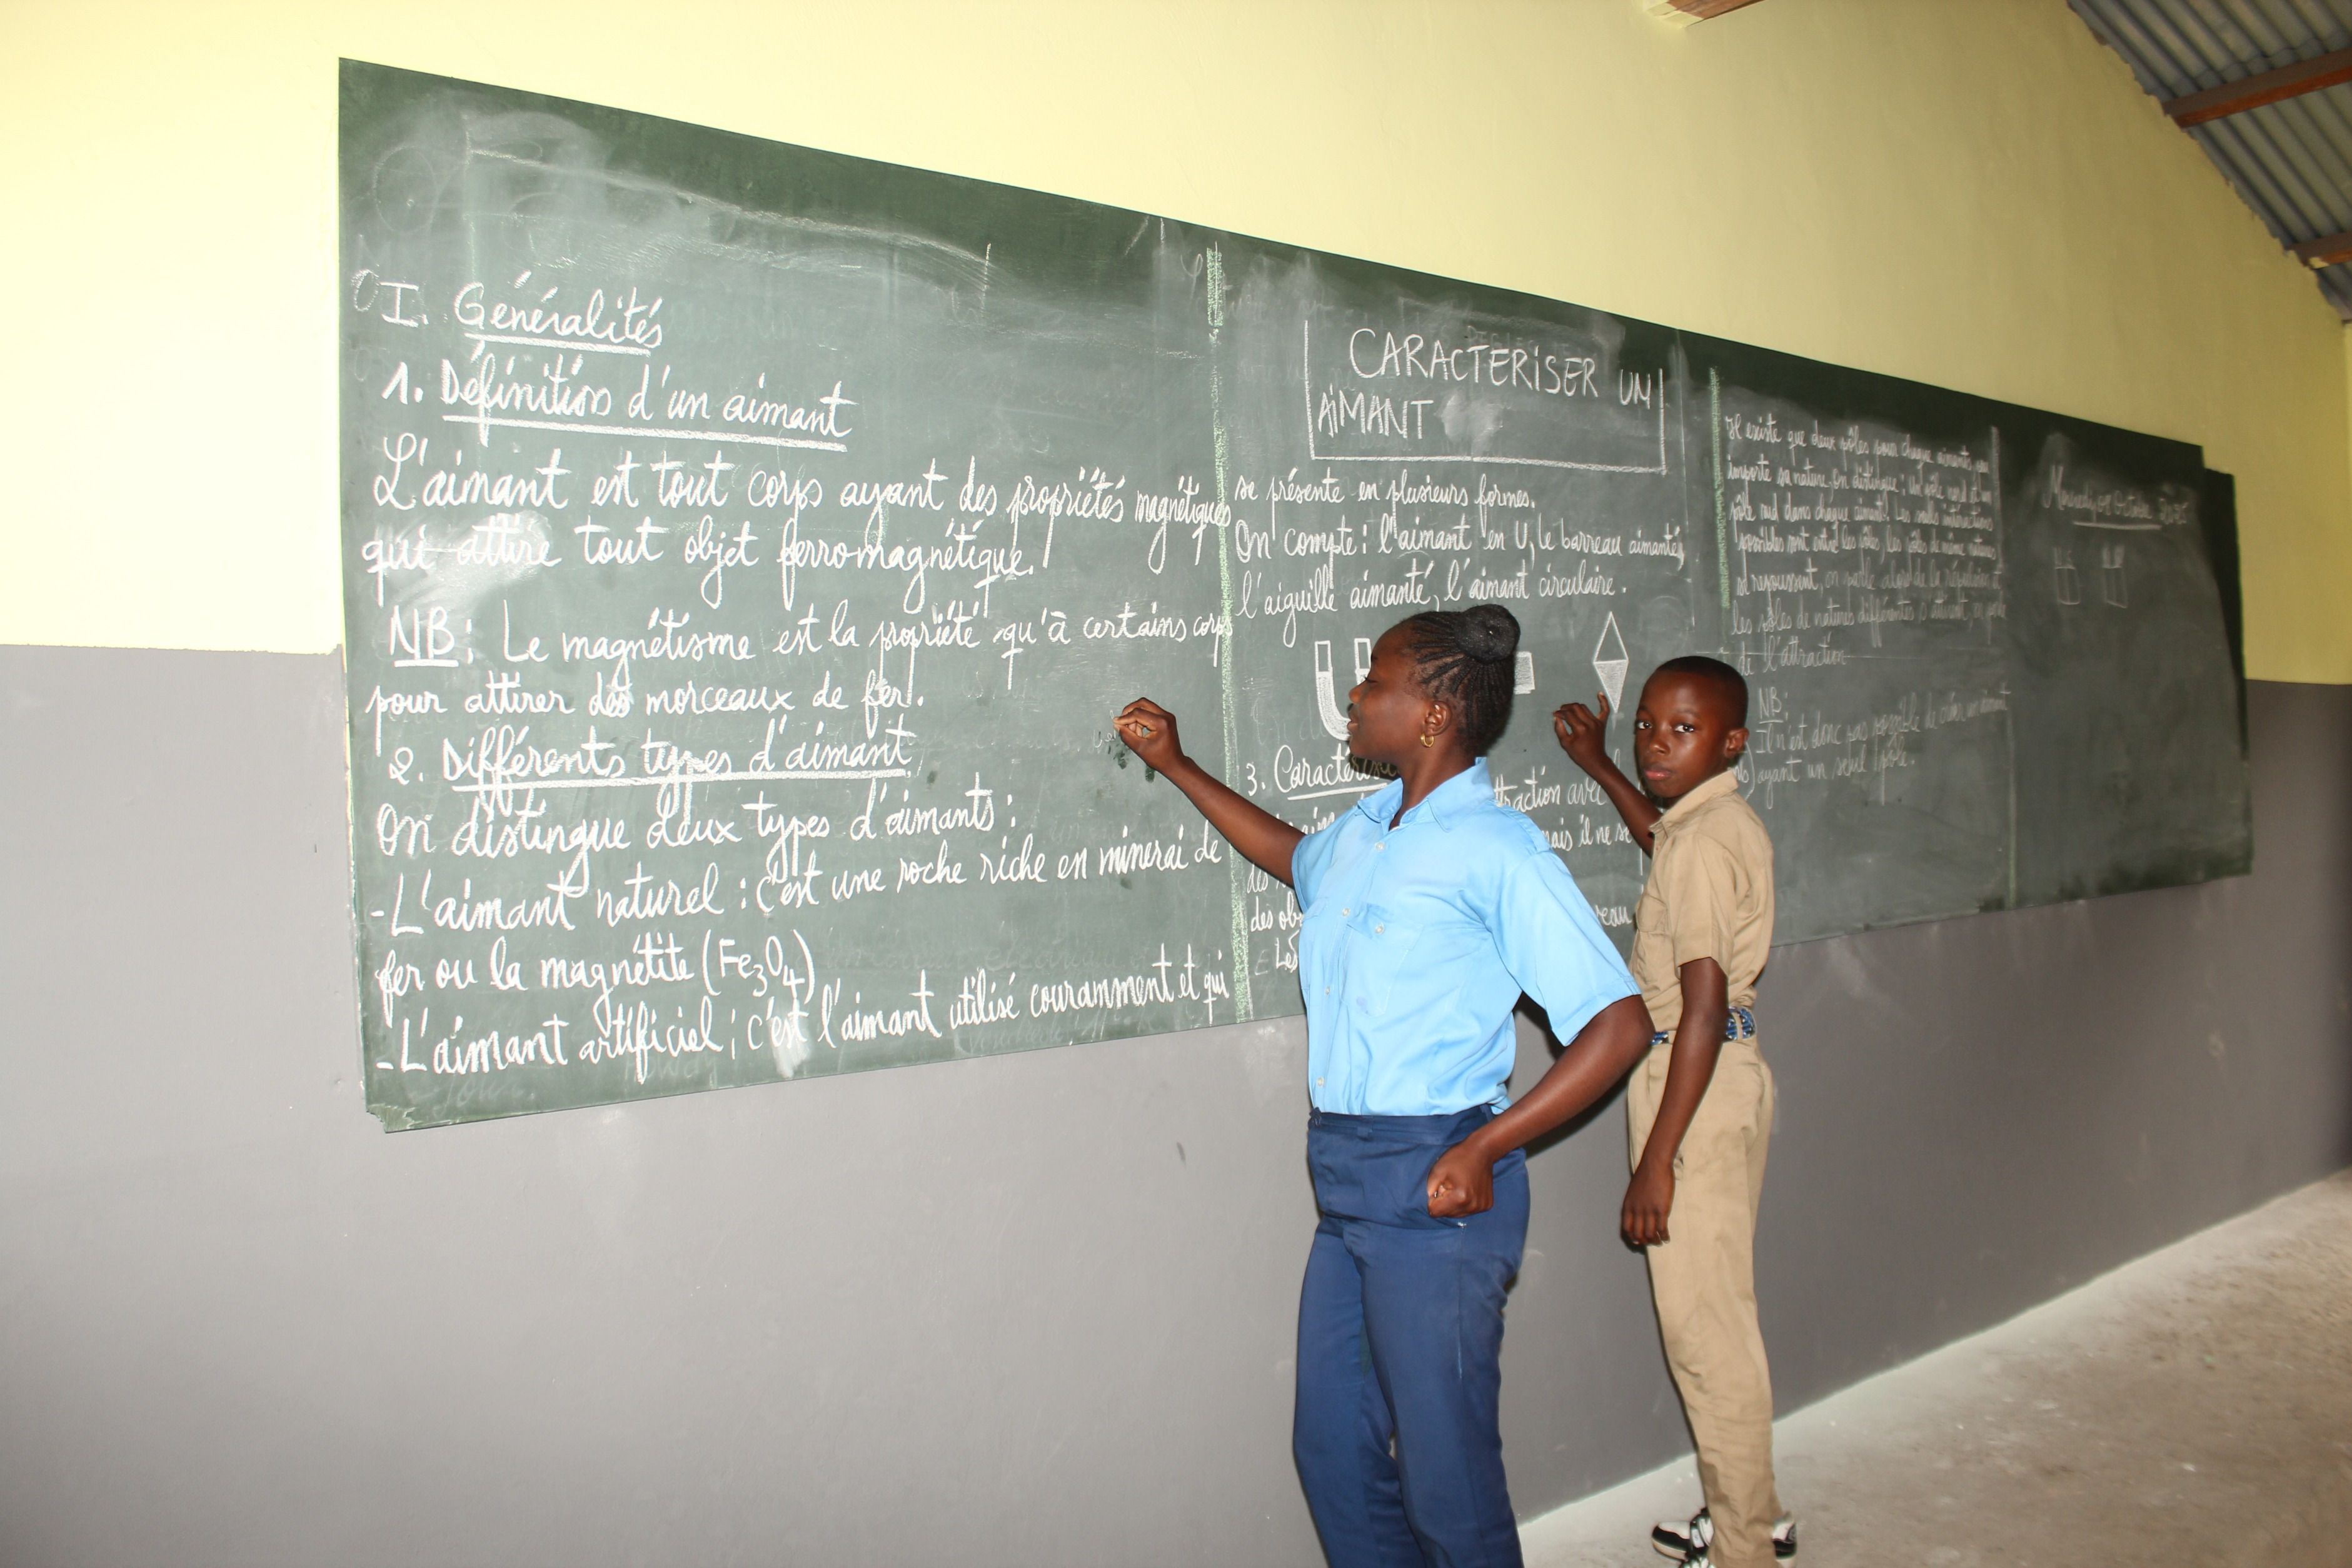 I. Généralités
1. Définition d'un aimant
L'aimant est tout corps ayant des propriétés magnétiques
qui attire tout objet ferromagnétique.
NB: Le magnétisme est la propriété qu'à certains corps
pour attirer des morceaux de fer.
2. Différents types d'aimant
On distingue deux types d'aimants :
-L'aimant naturel : c'est une roche riche en minerai de
fer ou la magnétite (Fe3O4)
-L'aimant artificiel ; c'est l'aimant utilisé couramment et qui
CARACTERISER UN
AIMANT
se présente en plusieurs formes.
On compte : l'aimant en U, le barreau aimanté,
l'aiguille aimanté, l'aimant circulaire.
3.
avec
mais il ne se
des
des
Les
Il existe que deux pôles pour chaque aimants, peu
importe sa nature. on distingue : un pôle nord et un
pôle sud dans chaque aimant. Les seuls interactions
possibles sont entre les pôles, les pôles de même natures
se repoussent, on parle alors de la répulsion et
les pôles de natures différentes s'attirent, on parle
de l'attraction
NB:
Il n'est donc pas possible de créer un aimant
ayant un seul pôle.
Octobre